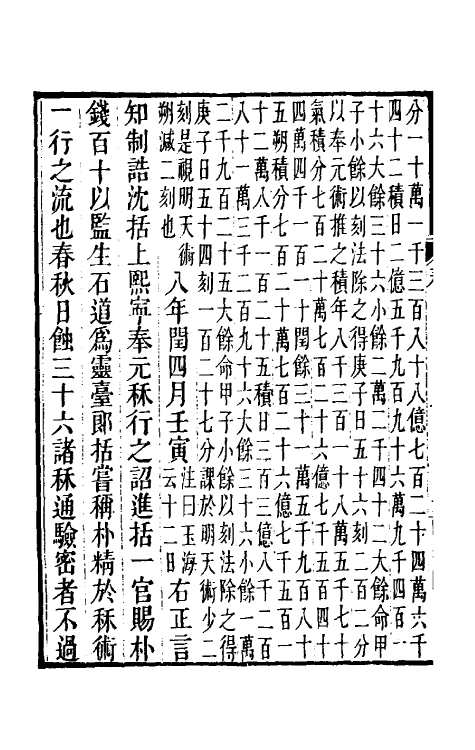 分一十萬一千三百八十八億七百二十四萬六千
四十二積日二億五千九百九十六萬九千四百一
十六大餘三十六小餘二萬二千四十二大餘命甲
子小餘以刻法除之得庚子日五十六刻二百二分
以奉元術推之積年八千三百一十八萬五千七十
氣積分七百二十萬七百二十六億七千五百四十
四萬四千一百一十閏餘三十一萬五千九百八十
五朔積分七百二十萬七百二十六億七千五百一
十二萬八千一百二十五積日三百三億八千二百
八十一萬三千二百九十六大餘三十六小餘一萬
二千九百二十五大餘命甲子小餘以刻法除之得
庚子日五十四刻一百二十七分課於明天術少二
刻是視明天術
朔減二刻也
八年閏四月壬寅
注曰玉海
云十二日
右正言
知制誥沈括上熙寧奉元秝行之詔進括一官賜朴
錢百十以監生石道爲靈臺郎括嘗稱朴精於秝術
一行之流也春秋日蝕三十六諸秝通驗密者不過